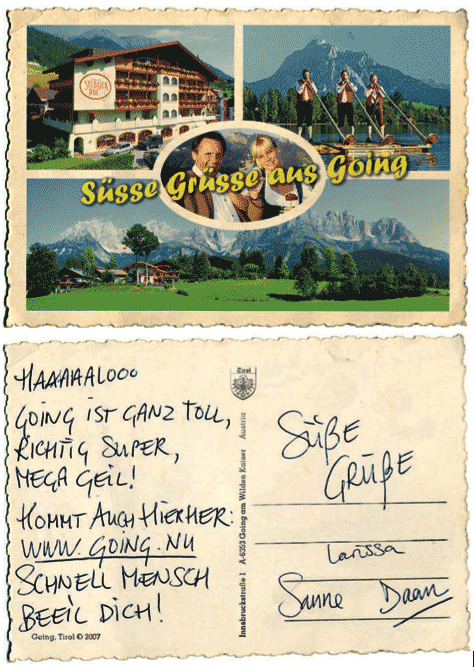 STANGLWIRT HOF
Süsse Grüsse aus Going
HAAAAALOOO
GOING IST GANZ TOLL,
RICHTIG SUPER,
MEGA GEIL!
KOMMT AUCH HIERHER:
WWW.GOING.NU
SCHNELL MENSCH
BEEIL DICH!
Going, Tirol © 2007
Innsbruckstraße 1 A-6353 Going am Wilden Kaiser Austria
Tirol
SÜßE
GRÜßE
Larissa
Sanne Daan